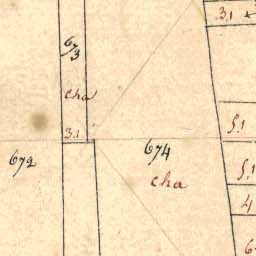 3.1
673
cha
3.1
674
672
cha
5.1
5.1
4
6